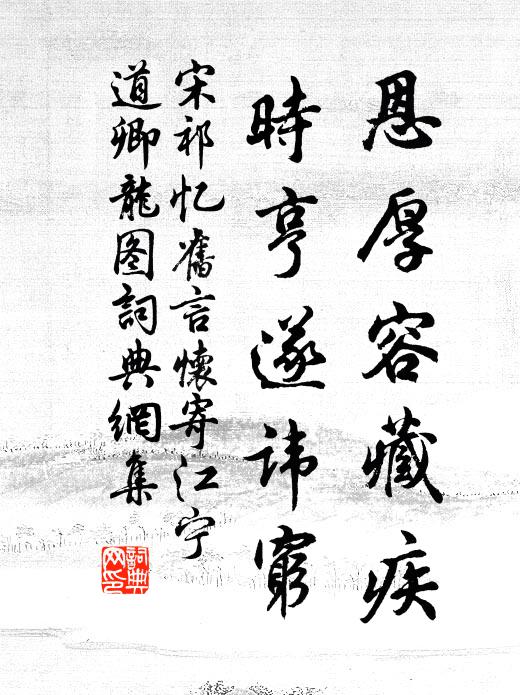 恩厚容藏疾
時亨遂諱窮
宋祁忆舊言懷寄江宁
道卿龍图詞典網集
詞典
网印